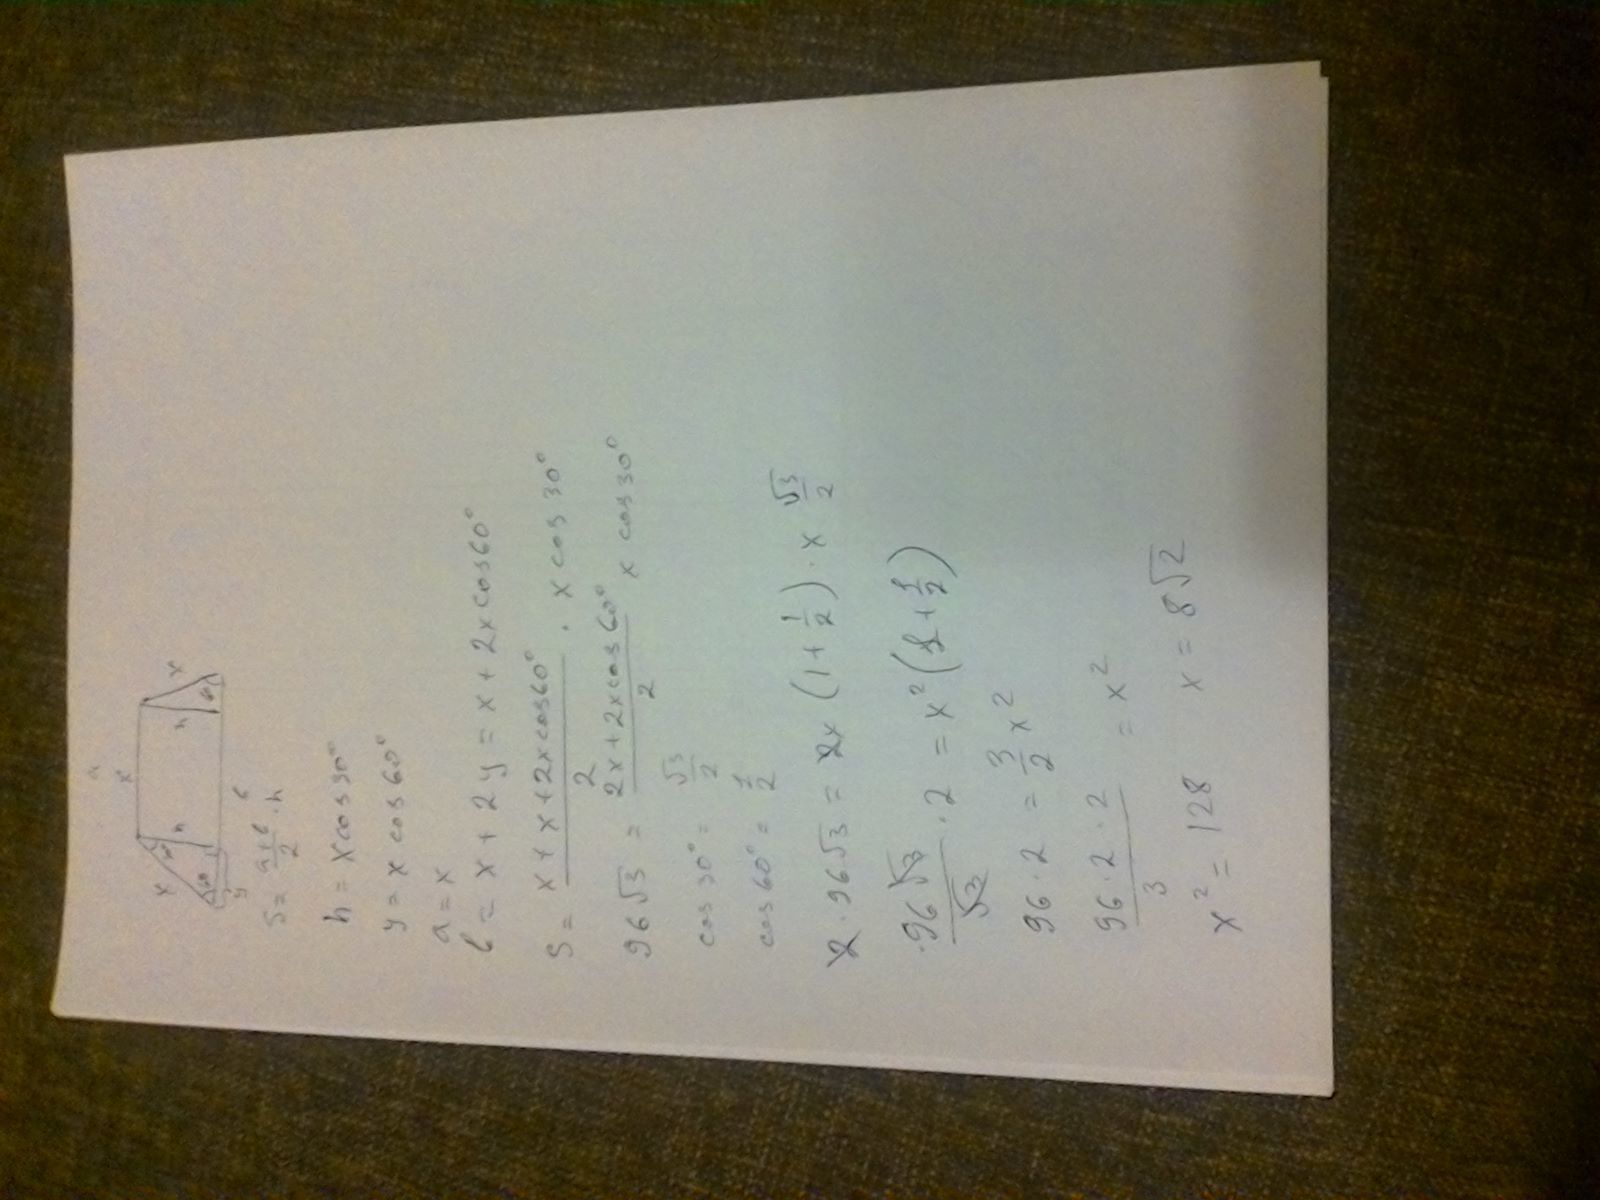 a
x
x h h x
30° 60° 60°
y b
S = a+b/2 · h
h = x cos 30°
y = x cos 60°
a = x
b = x + 2y = x + 2x cos 60°
S = x + x + 2x cos 60°/2 · x cos 30°
96√3 = 2x + 2x cos 60°/2 x cos 30°
cos 30° = √3/2
cos 60° = 1/2
2 · 96√3 = 2x (1 + 1/2) · x √3/2
96√3/√3 · 2 = x² (1 + 1/2)
96 · 2 = 3/2 x²
96 · 2 · 2/3 = x²
x² = 128 x = 8√2